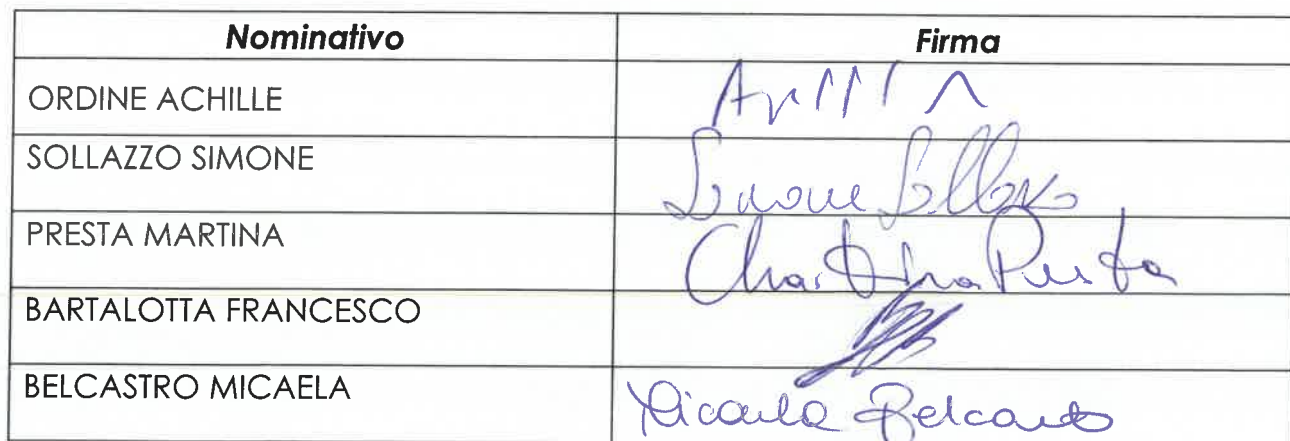 Nominativo Firma
ORDINE ACHILLE
SOLLAZZO SIMONE Simone Sollazzo
PRESTA MARTINA Martina Presta
BARTALOTTA FRANCESCO
BELCASTRO MICAELA Micaela Belcastro